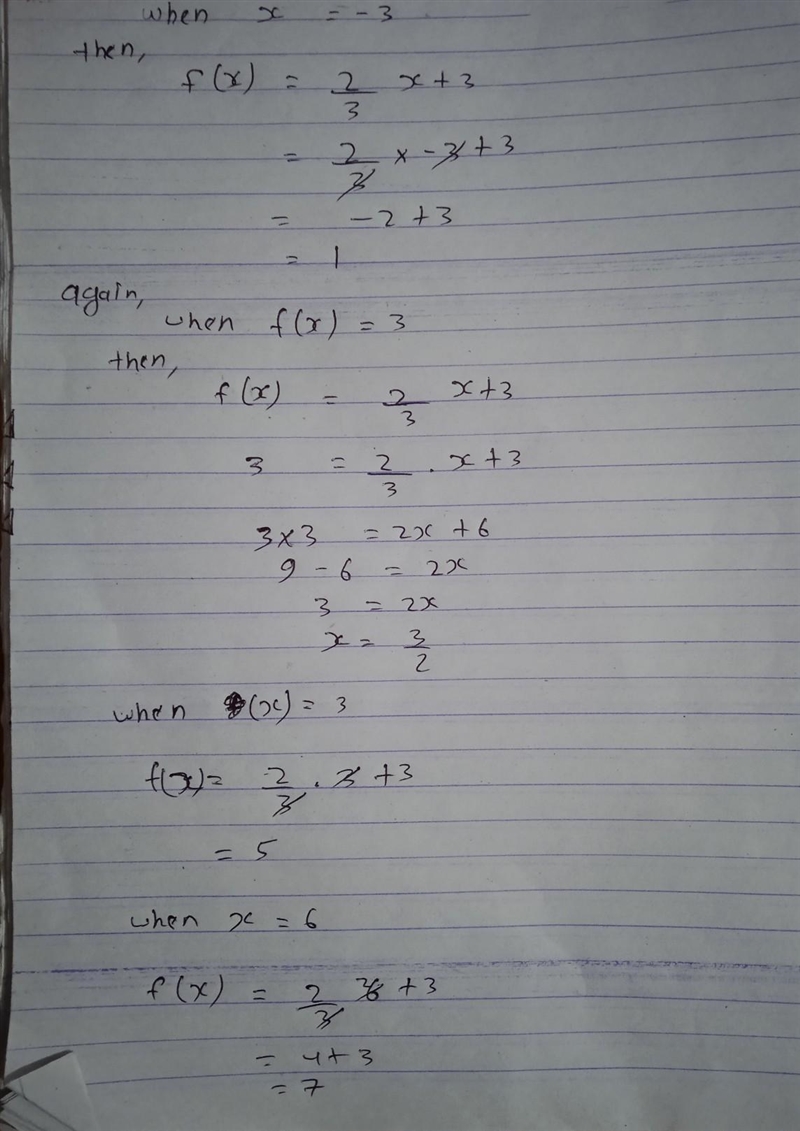 when x = -3
then,
f(x) = 2/3 x+3
= 2/3 x -3 + 3
= -2 +3
= 1
again,
when f(x) = 3
then,
f(x) = 2/3 x+3
3 = 2/3 . x +3
3×3 = 2x + 6
9 - 6 = 2x
3 = 2x
x = 3/2
when (x) = 3
f(x)= 2/3 . 3 +3
= 5
when x = 6
f(x) = 2/3 6 + 3
= 4+ 3
= 7